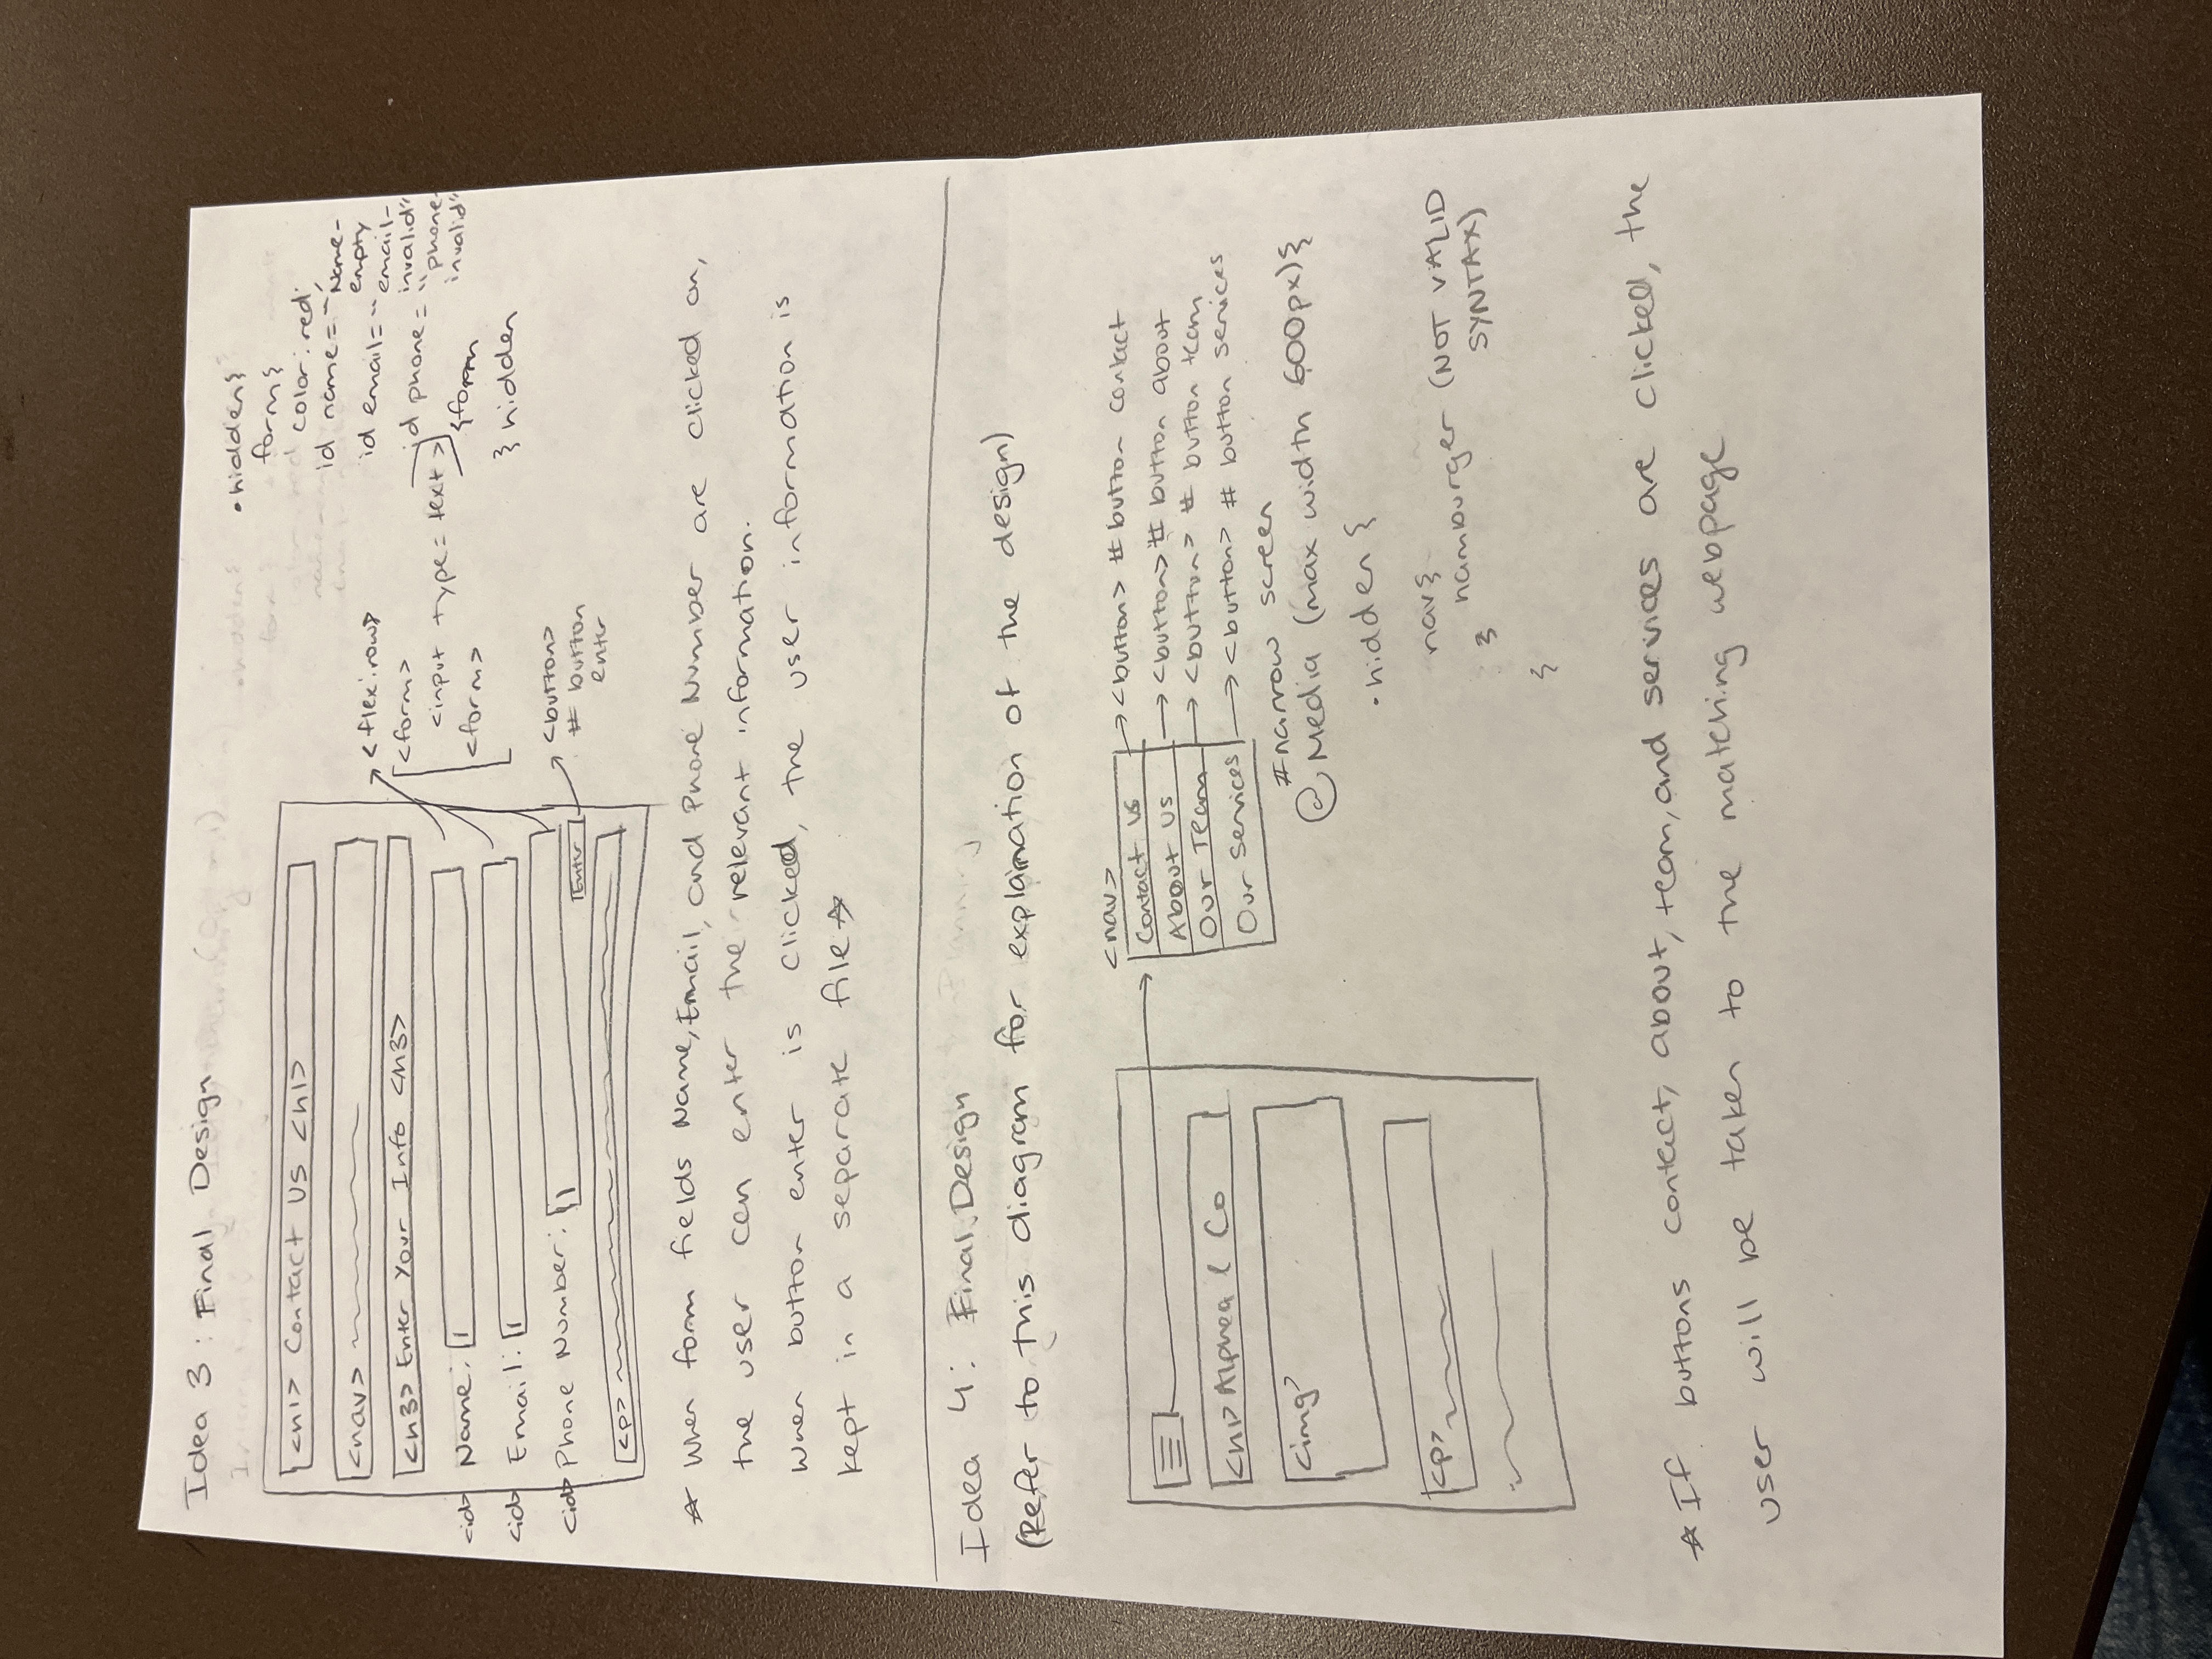 Idea 3: Final Design
<h1> Contact Us <h1>
<nav>
<h3> Enter Your Info <h3>
<id> Name:
<id> Email:
<id> Phone Number:
Enter
<p>
<flex:row>
<form>
<input type = text >
<form>
<button>
# button
enter
.hidden{
form{
color: red;
id name = "Name-
empty
id email = "email-
invalid"
id phone = "phone-
invalid"
}form
} hidden
☆ When form fields Name, Email, and Phone Number are clicked on,
the user can enter the relevant information.
When button enter is clicked, the user information is
kept in a separate file ☆
Idea 4: Final Design
(Refer to this diagram for explanation of the design)
<h1> Alphea & Co
<img>
<p>
<nav>
Contact Us
About Us
Our Team
Our Services
<button> # button contact
<button> # button about
<button> # button team
<button> # button services
#narrow screen
@Media (max width 600px){
.hidden {
nav{
hamburger (NOT VALID
SYNTAX)
}
}
☆ If buttons contact, about, team, and services are clicked, the
user will be taken to the matching webpage